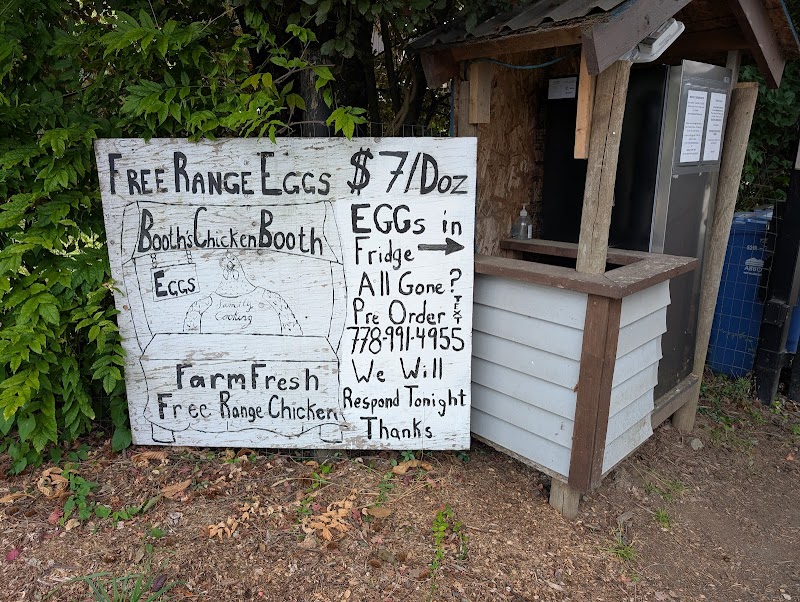 Free Range Eggs $7/Doz
Booth's Chicken Booth
Eggs
Simply
Cooking
Farm Fresh
Free Range Chicken
EGGs in
Fridge →
All Gone?
Pre Order TEXT
778-991-4955
We Will
Respond Tonight
Thanks